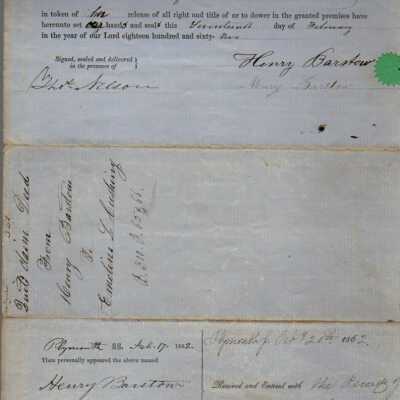 in token of her release of all right and title of or to dower in the granted premises have
hereunto set our hands and seals this Seventeenth day of February
in the year of our Lord eighteen hundred and sixty-two
Signed, sealed and delivered
in the presence of
Henry Barstow
Thos. Nelson
Quit Claim Deed
From
Henry Barstow
To
Emeline L. Cushing
Plymouth SS. Feb. 17. 1862.
Then personally appeared the above named
Henry Barstow
Plymouth ss. Octr. 20th 1862.
Received and Entered with the Records of